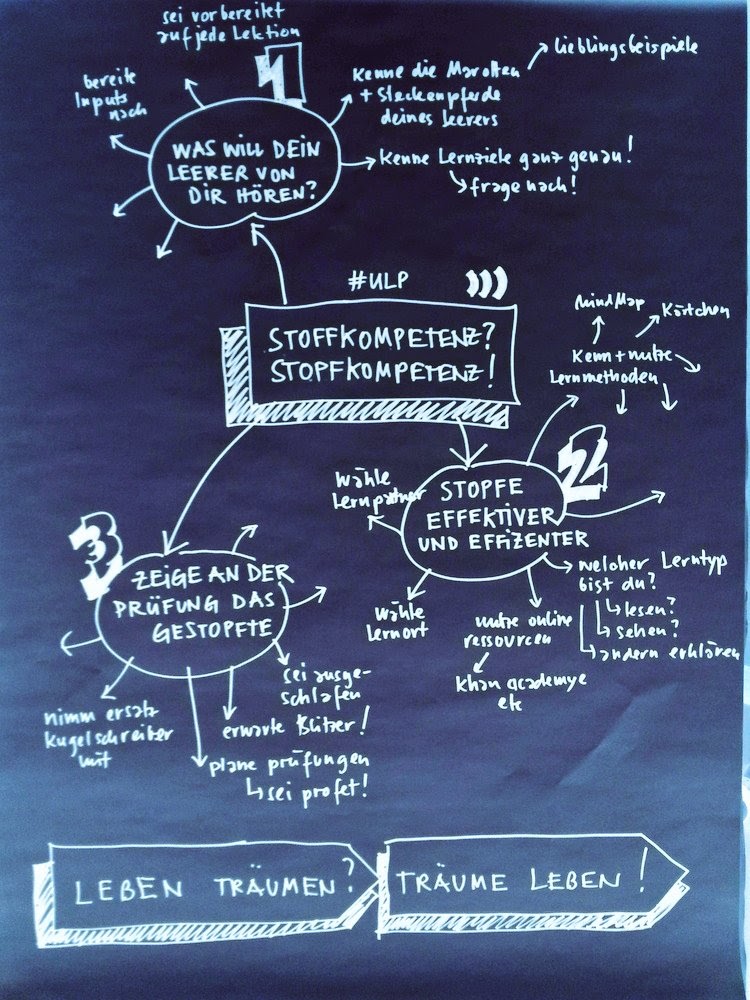 sei vorbereitet
auf jede Lektion
1
bereite
Inputs
nach
WAS WILL DEIN
LEERER VON
DIR HÖREN?
Kenne die Marotten
+ Steckenpferde
deines Leerers
Lieblingsbeispiele
Kenne Lernziele ganz genau!
frage nach!
#ULP
STOFFKOMPETENZ?
STOPFKOMPETENZ!
MindMap
Kärtchen
Kenn + nutze
Lernmethoden
2
STOPFE
EFFEKTIVER
UND EFFIZENTER
wähle
Lernpartner
wähle
Lernort
nutze online
ressourcen
khan academye
etc
welcher Lerntyp
bist du?
lesen?
sehen?
andern erklären
3
ZEIGE AN DER
PRÜFUNG DAS
GESTOPFTE
nimm ersatz
kugelschreiber
mit
sei ausge-
schlafen
erwarte Blitzer!
plane prüfungen
sei profet!
LEBEN TRÄUMEN?
TRÄUME LEBEN!